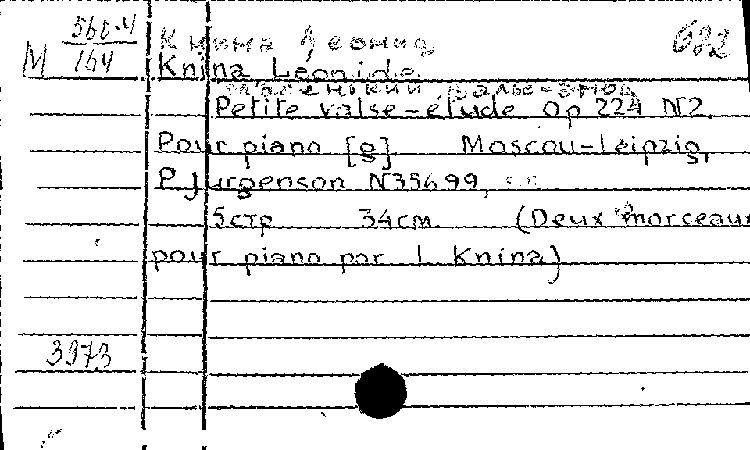 М 560-4/164
Книна Леонид
632
Knina Léonide
маленький вальс-этюд
Petite valse-étude op 224 N2.
Pour piano [g] Moscou-Leipzig,
P. Jurgenson N35699,
5стр 34см. (Deux morceaux
pour piano par L. Knina)
3973